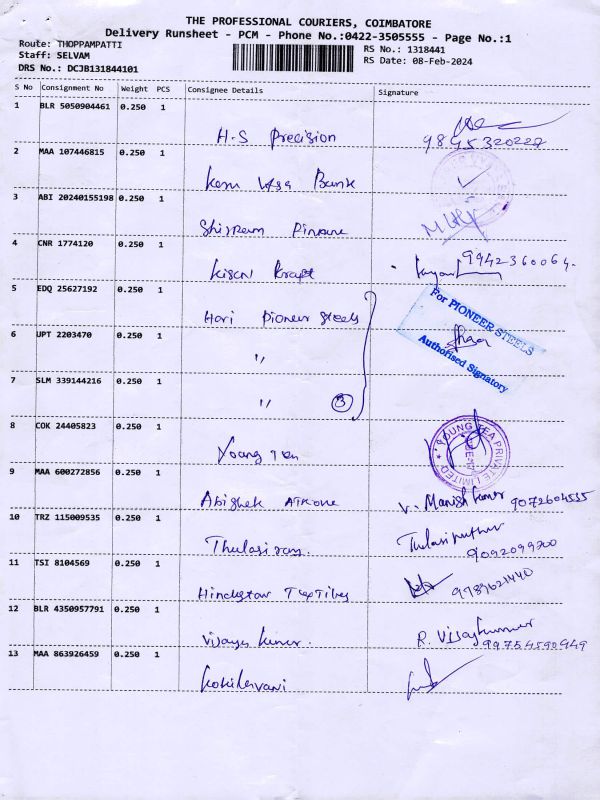 THE PROFESSIONAL COURIERS, COIMBATORE
Delivery Runsheet - PCM - Phone No.:0422-3505555 - Page No.:1
Route: THOPPAMPATTI RS No.: 1318441
Staff: SELVAM RS Date: 08-Feb-2024
DRS No.: DCJB131844101
S No Consignment No Weight PCS Consignee Details Signature
1 BLR 5050904461 0.250 1
H.S Precision 9895320222
2 MAA 107446815 0.250 1
Bank
3 ABI 20240155198 0.250 1
Shriram
4 CNR 1774120 0.250 1
Kisan Kraft 9942360064.
5 EDQ 25627192 0.250 1
Hari Pioneer Steels
For PIONEER STEELS
Authorised Signatory
6 UPT 2203470 0.250 1
"
7 SLM 339144216 0.250 1
" 3
8 COK 24405823 0.250 1
Young Tea
YOUNG TEA PRIVATE LIMITED
9 MAA 600272856 0.250 1
Abishek V. Manish Kumar 9072604555
10 TRZ 115009535 0.250 1
Thulasiram.
11 TSI 8104569 0.250 1
Hindustan Textiles 9789621440
12 BLR 4350957791 0.250 1
Vijaya Kumar. R. Vijaykumar
13 MAA 863926459 0.250 1
Kokilavani